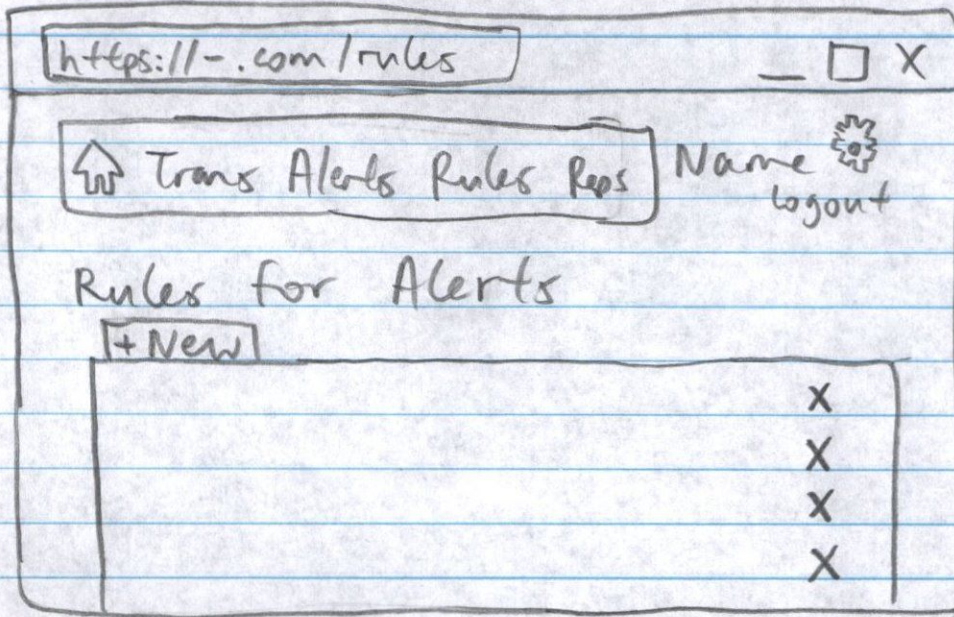 https://-.com/rules _ □ X
Trans Alerts Rules Reps Name
Logout
Rules for Alerts
+ New
X
X
X
X